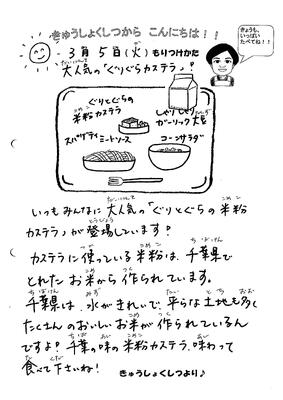 きゅうしょくしつから こんにちは！！
きょうも、
いっぱい
たべてね！！
3月 5日(火) もりつけかた
大人気の「ぐりぐらカステラ」♪
ぐりとぐらの
米粉カステラ
しゃりしゃり
ガーリック大豆
スパゲティミートソース
コーンサラダ
いつもみんなに大人気の「ぐりとぐらの米粉
カステラ」が登場しています！
カステラに使っている米粉は、千葉県で
とれたお米から作られています。
千葉県は、水がきれいで、平らな土地も多く
たくさんのおいしいお米が作られているん
ですよ？千葉の味の米粉カステラ、味わって
食べて下さいね！
きゅうしょくしつより♪